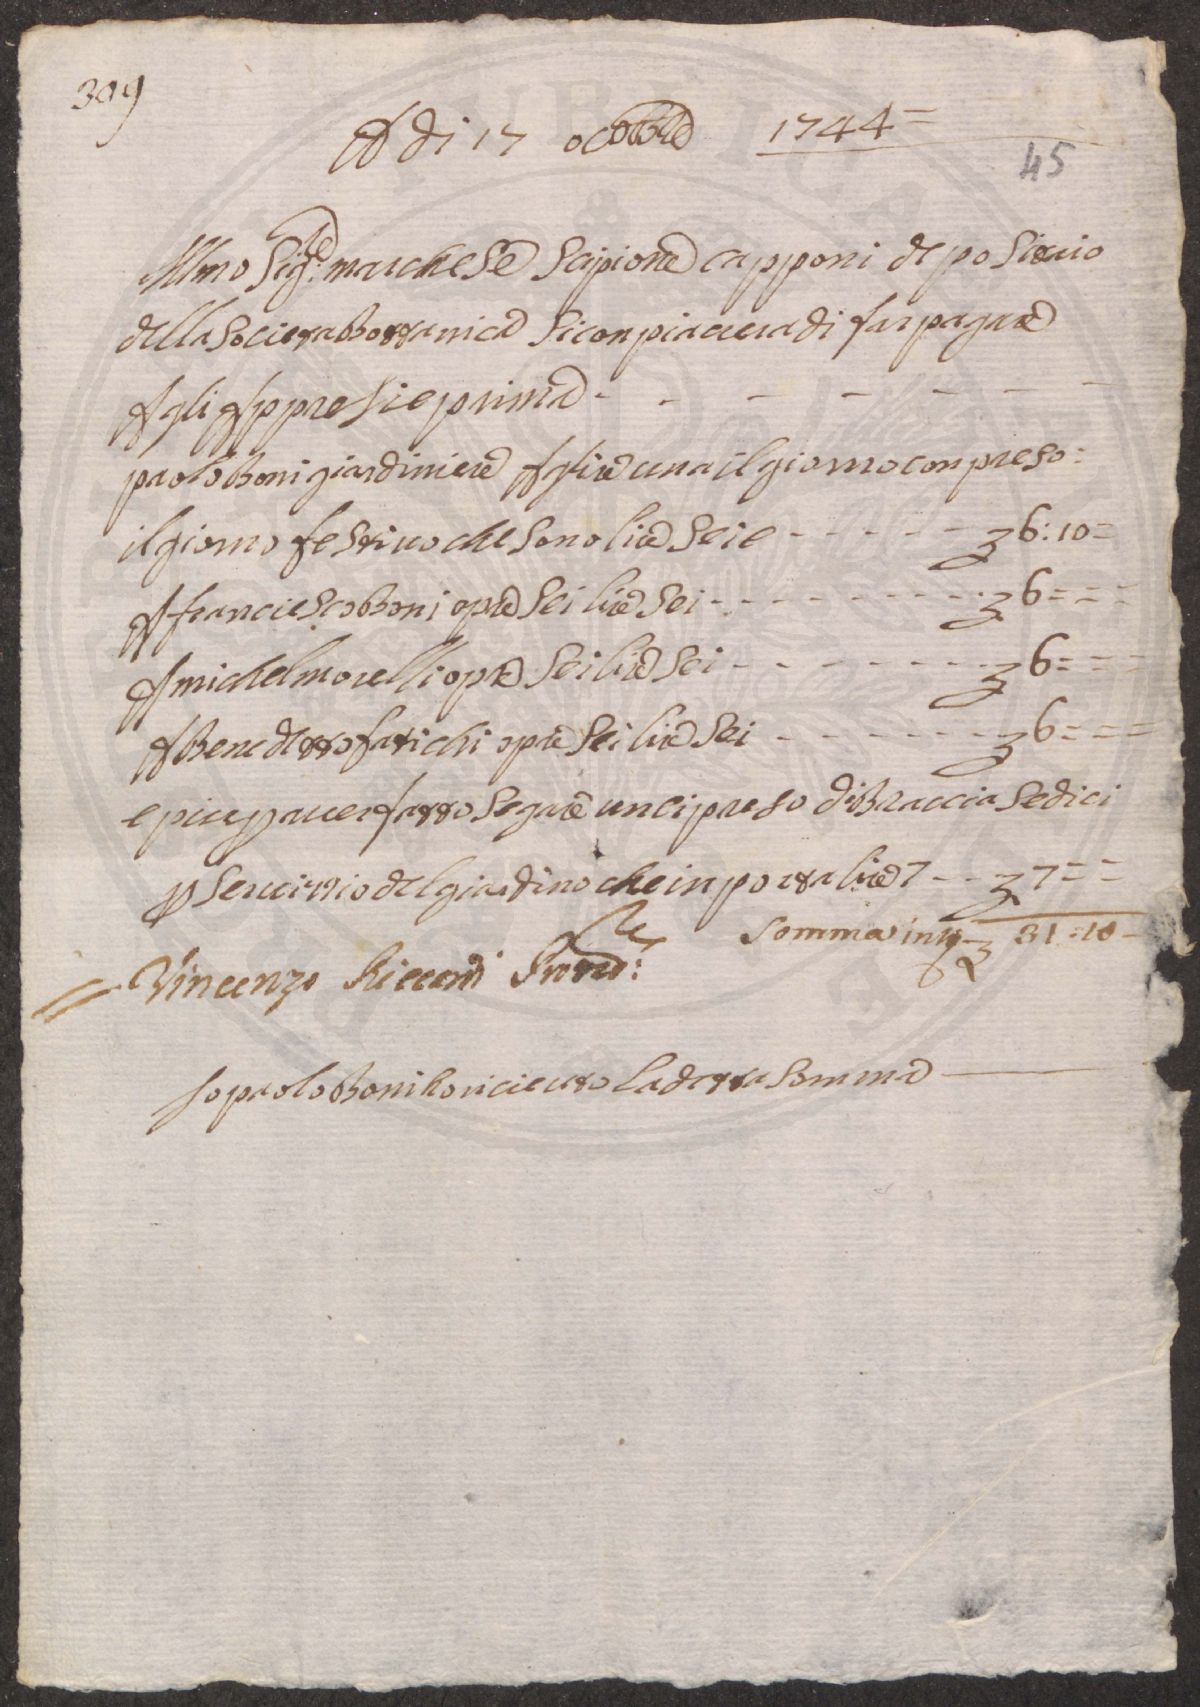 309
A di 17 ottobre 1744 =
45
Illmo Sigre: marchese Scipione capponi depositario
della Societa bottanica Si conpiacera di far pagare
A gli Appresie prima - - - - - - -
paolo Boni giardiniere A lire una il giorno conpreso:
il giorno festivo che sono lire Sei e - - - - - 6:10=
A franciesco Boni opre Sei lire Sei - - - - - - - - - 6===
A michel morelli opre Sei lire Sei - - - - - - - - 6===
A Benedetto fatichi opre Sei lire Sei - - - - - - - 6===
e piu p aver fatto Segare un cipreso di Braccia Sedici
p Servizzio del giardino che inporta lire 7 - - - 7==
Somma in 31-10-
= Vincenzo Riccardi
Io paolo Boni ho riceuto La detta Somma